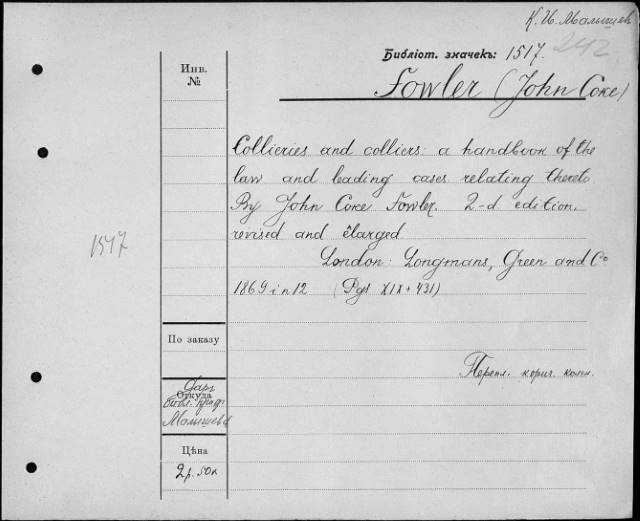 К. И. Малышев
242
Библіот. значекъ: 1517.
Fowler (John Coke)
Инв.
№
Collieries and colliers: a handbook of the
law and leading cases relating thereto
By John Coke Fowler. 2-d edition,
revised and elarged
London: Longmans, Green and Co
1869 in 12 (Pgs XIX + 431)
1517
По заказу
Перепл. корич. коленк.
Откуда
Даръ
библ. проф.
Малышева
Цѣна
2 р. 50 к